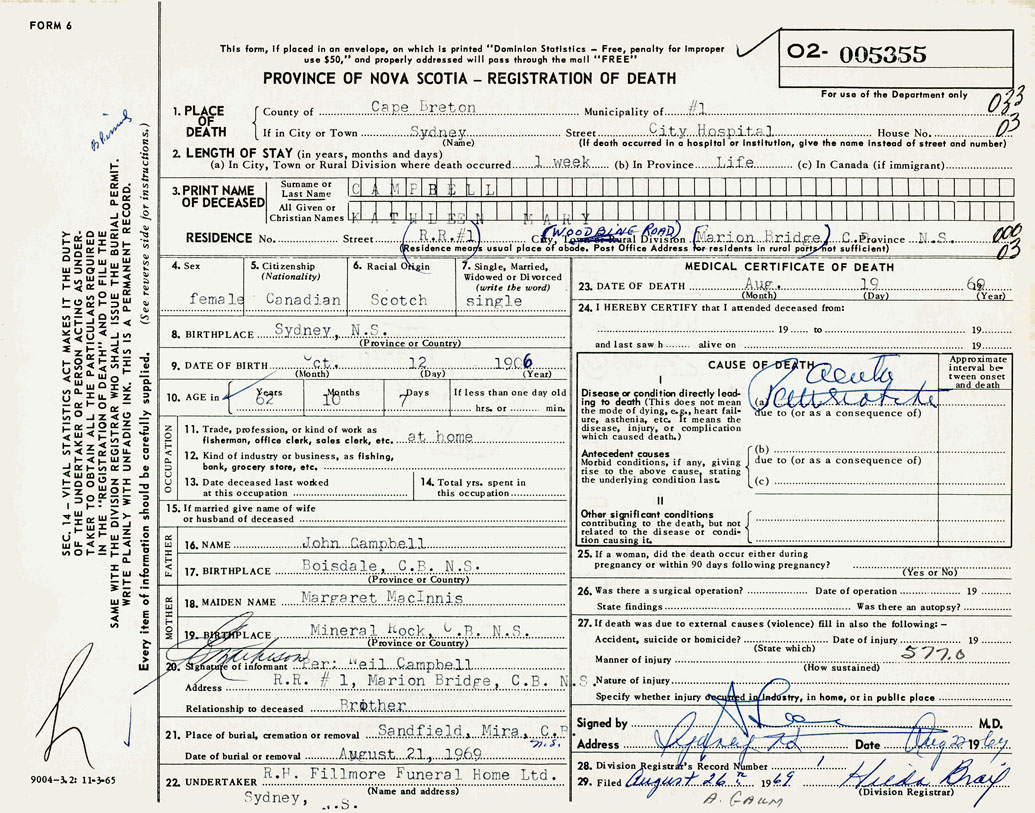 FORM 6
This form, if placed in an envelope, on which is printed "Dominion Statistics – Free, penalty for improper
use $50," and properly addressed will pass through the mail "FREE"
02- 005355
PROVINCE OF NOVA SCOTIA – REGISTRATION OF DEATH
For use of the Department only
033
03
1. PLACE OF DEATH
County of Cape Breton Municipality of #1
If in City or Town Sydney Street City Hospital House No.
(Name) (If death occurred in a hospital or institution, give the name instead of street and number)
2. LENGTH OF STAY (in years, months and days)
(a) In City, Town or Rural Division where death occurred 1 week (b) In Province Life (c) In Canada (if immigrant)
3. PRINT NAME OF DECEASED
Surname or Last Name CAMPBELL
All Given or Christian Names KATHLEEN MARY
RESIDENCE No. Street R.R.#1 (WOODBINE ROAD) City, Town or Rural Division (Marion Bridge) C.B. Province N.S.
(Residence means usual place of abode. Post Office Address for residents in rural parts not sufficient)
000
03
4. Sex
female
5. Citizenship (Nationality)
Canadian
6. Racial Origin
Scotch
7. Single, Married, Widowed or Divorced (write the word)
single
8. BIRTHPLACE Sydney, N.S.
(Province or Country)
9. DATE OF BIRTH Oct. 12 1906
(Month) (Day) (Year)
10. AGE in Years Months Days If less than one day old
62 10 7 hrs. or min.
OCCUPATION
11. Trade, profession, or kind of work as
fisherman, office clerk, sales clerk, etc. at home
12. Kind of industry or business, as fishing,
bank, grocery store, etc.
13. Date deceased last worked
at this occupation
14. Total yrs. spent in
this occupation
15. If married give name of wife
or husband of deceased
FATHER
16. NAME John Campbell
17. BIRTHPLACE Boisdale, C.B. N.S.
(Province or Country)
MOTHER
18. MAIDEN NAME Margaret MacInnis
19. BIRTHPLACE Mineral Rock, C.B. N.S.
(Province or Country)
20. Signature of informant Per: Neil Campbell
Address R.R. # 1, Marion Bridge, C.B. N.S.
Relationship to deceased Brother
21. Place of burial, cremation or removal Sandfield, Mira, C.B.
N.S.
Date of burial or removal August 21, 1969
22. UNDERTAKER R.H. Fillmore Funeral Home Ltd.
(Name and address)
Sydney, N.S.
MEDICAL CERTIFICATE OF DEATH
23. DATE OF DEATH Aug. 19 69
(Month) (Day) (Year)
24. I HEREBY CERTIFY that I attended deceased from:
19 to 19
and last saw h alive on 19
CAUSE OF DEATH
Approximate interval between onset and death
I
Disease or condition directly leading to death (This does not mean the mode of dying, e.g., heart failure, asthenia, etc. It means the disease, injury, or complication which caused death.)
(a) Acute Pancreatitis
due to (or as a consequence of)
Antecedent causes
Morbid conditions, if any, giving rise to the above cause, stating the underlying condition last.
(b)
due to (or as a consequence of)
(c)
II
Other significant conditions
contributing to the death, but not related to the disease or condition causing it.
25. If a woman, did the death occur either during
pregnancy or within 90 days following pregnancy?
(Yes or No)
26. Was there a surgical operation? Date of operation 19
State findings Was there an autopsy?
27. If death was due to external causes (violence) fill in also the following: –
Accident, suicide or homicide? Date of injury 19
(State which) 577.0
Manner of injury
(How sustained)
Nature of injury
Specify whether injury occurred in industry, in home, or in public place
Signed by M.D.
Address Sydney NS Date Aug 22 1969
28. Division Registrar's Record Number
29. Filed August 26th 1969 Hilda
(Division Registrar)
A. GAUM
SEC. 14 – VITAL STATISTICS ACT MAKES IT THE DUTY
OF THE UNDERTAKER OR PERSON ACTING AS UNDER-
TAKER TO OBTAIN ALL THE PARTICULARS REQUIRED
IN THE "REGISTRATION OF DEATH" AND TO FILE THE
SAME WITH THE DIVISION REGISTRAR WHO SHALL ISSUE THE BURIAL PERMIT.
WRITE PLAINLY WITH UNFADING INK. THIS IS A PERMANENT RECORD.
Every item of information should be carefully supplied. (See reverse side for instructions.)
9004-3.2: 11-3-65